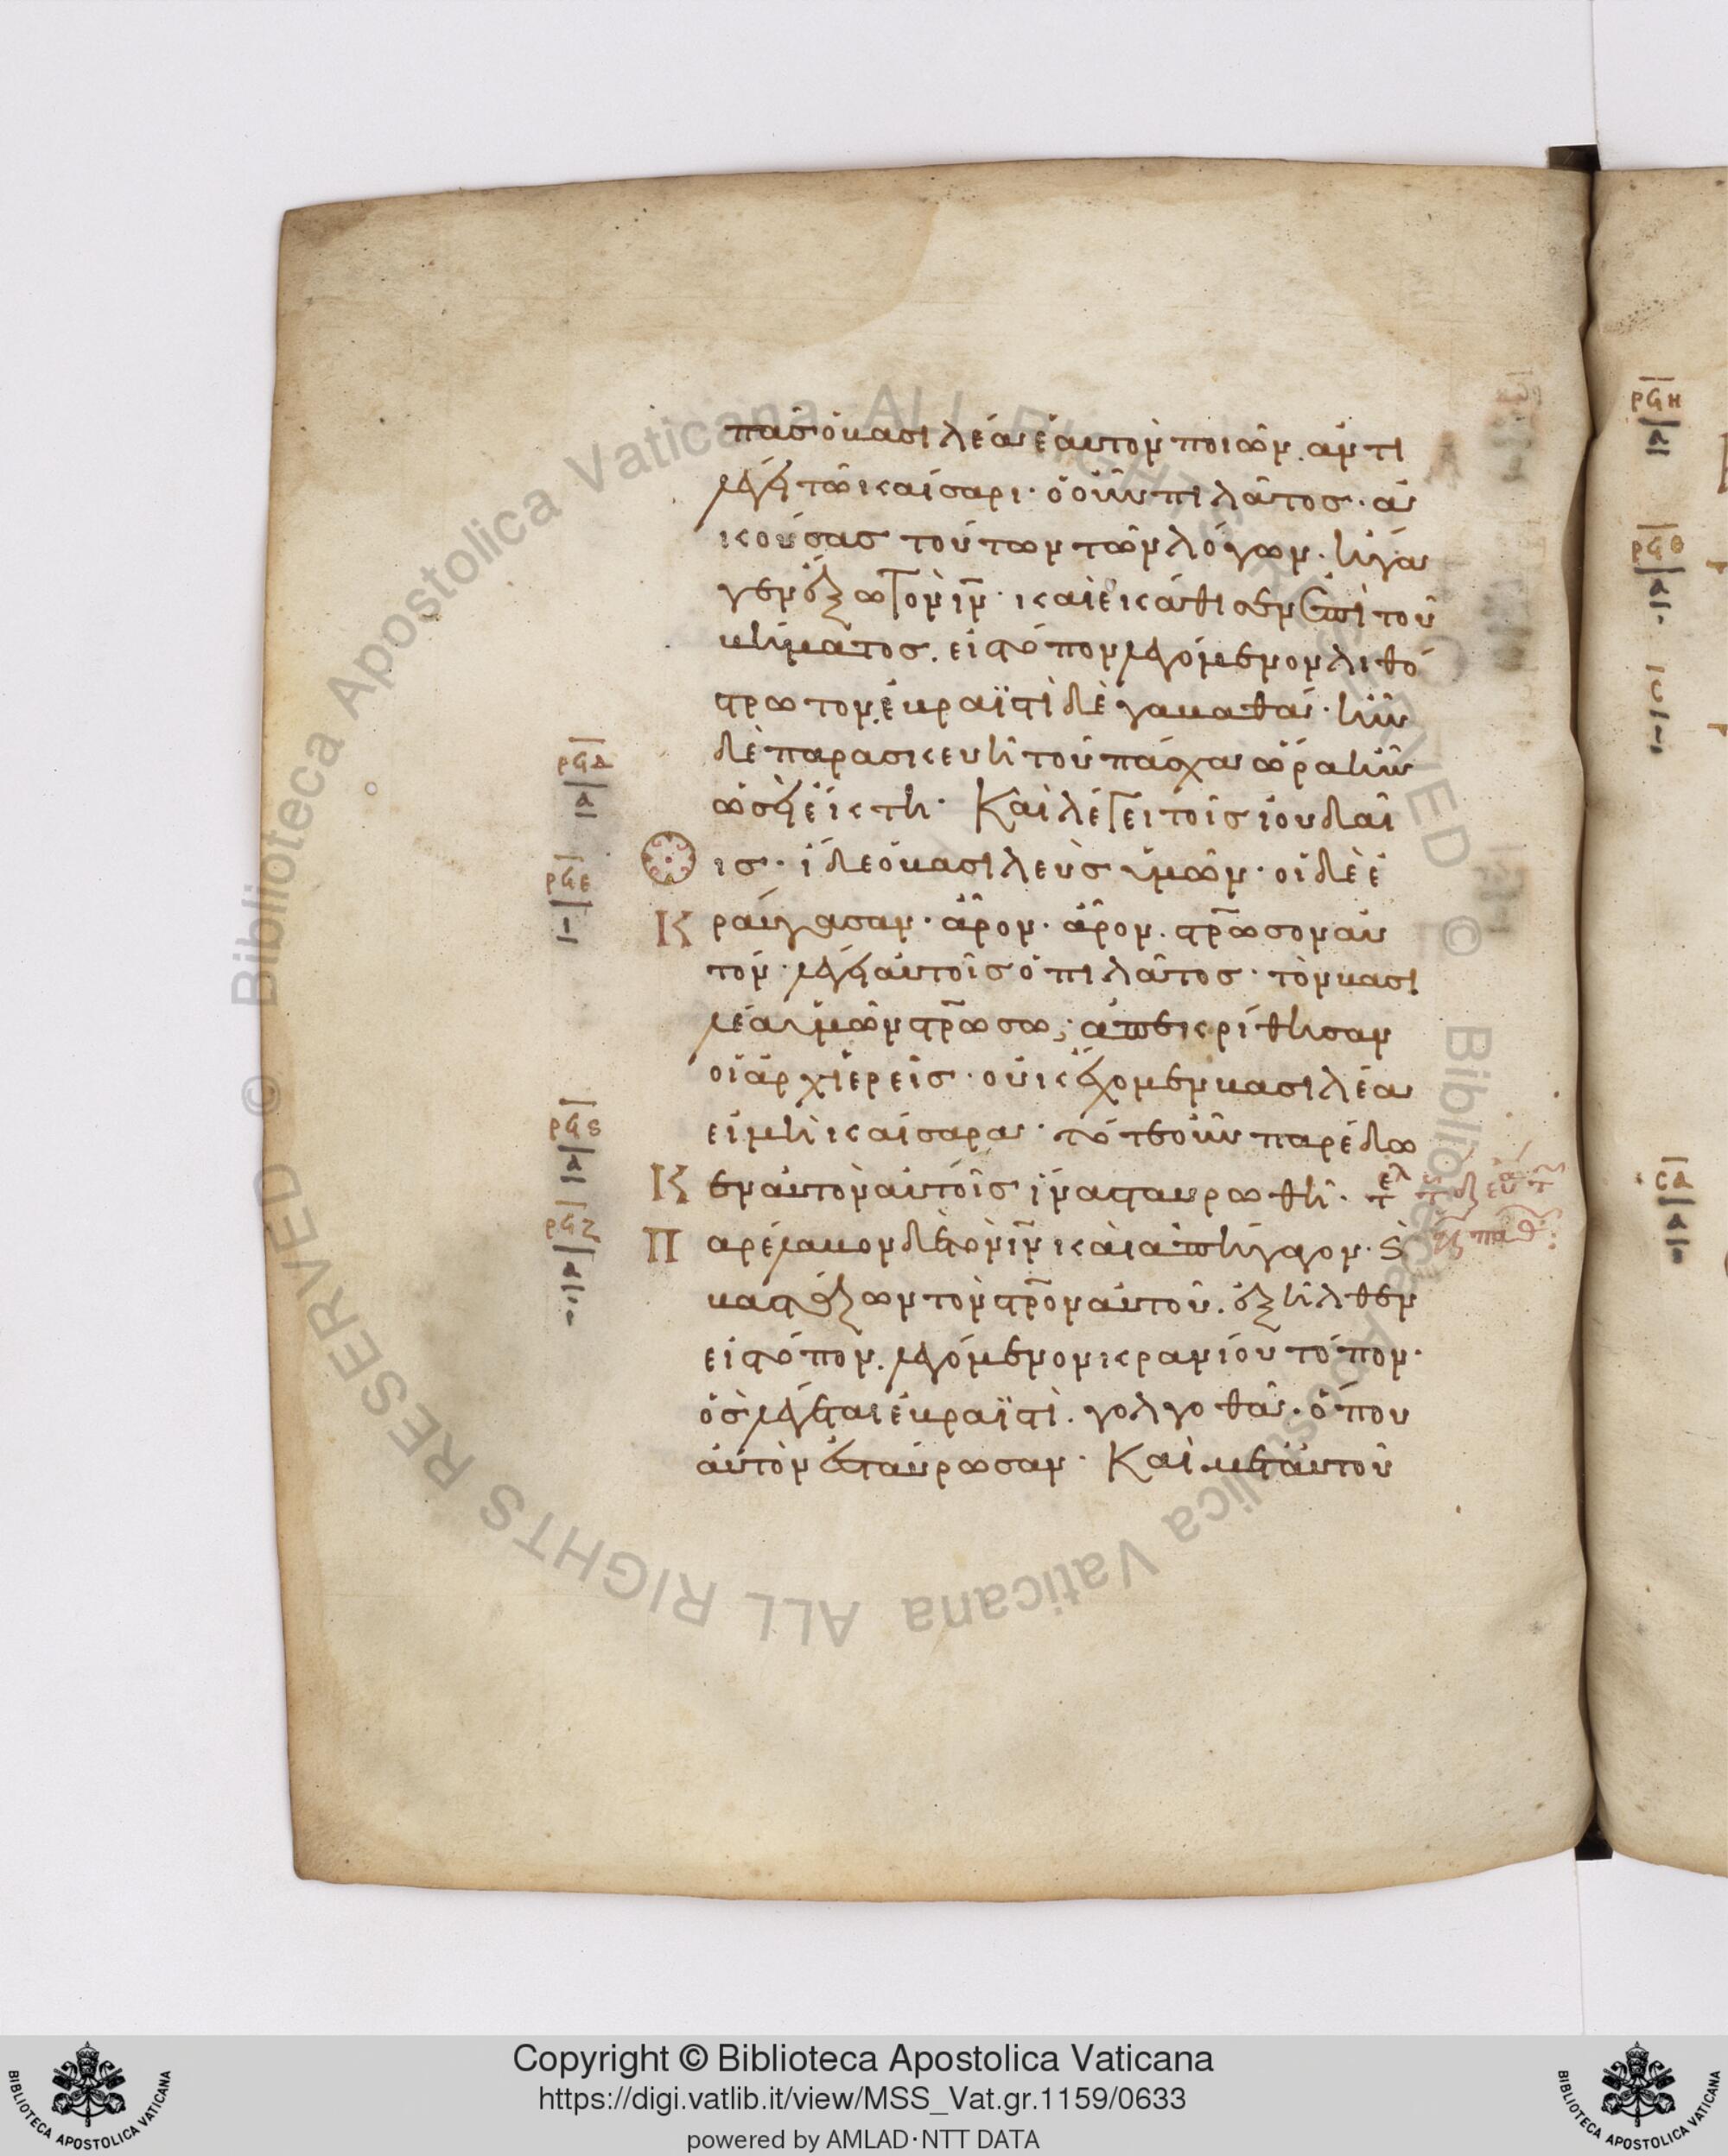 πᾶς ὁ βασιλέα ἑαυτὸν ποιῶν. ἀντι
λέγει τῶ καίσαρι· ὁ οὖν πιλᾶτος· ἀ
κούσας τούτων τῶν λόγων· ἤγα
γεν ἔξω τὸν ιν̅· καὶ ἐκάθισεν ἐπὶ τοῦ
βήματος. εἰς τόπον λεγόμενον λιθό
στρωτον. ἑβραϊστὶ δὲ γαβαθά· ἦν
δὲ παρασκευὴ τοῦ πάσχα ὥρα ἦν
ὡσεὶ ἕκτη· Καὶ λέγει τοῖς ἰουδαί
οις· ἴδε ὁ βασιλεὺς ὑμῶν· οἱ δὲ ἐ
Κ ραύγασαν· ἆρον· ἆρον. στρ̅ωσον αὐ
τόν· λέγει αὐτοῖς ὁ πιλᾶτος· τὸν βασι
λέα ὑμῶν στρ̅ωσω; ἀπεκρίθησαν
οἱ ἀρχιερεῖς· οὐκ ἔχομεν βασιλέα
εἰ μὴ καίσαρα· τότε οὖν παρέδω
Κ εν αὐτὸν αὐτοῖς ἵνα σταυρωθῆ· τελ
Π αρέλαβον δὲ τὸν ιν̅ καὶ ἀπήγαγον· ϛ
βαστάζων τὸν στρ̅ον αὐτοῦ. ἐξῆλθεν
εἰς τόπον. λεγόμενον κρανίου τόπον·
ὃς λέγεται ἑβραϊστὶ. γολγοθᾶ· ὅπου
αὐτὸν ἐσταύρωσαν· Καὶ μετ αὐτοῦ
ρϟδ
α
ρϟε
ι
ρϟϛ
α
ρϟζ
α
ρϟη
α
ρϟθ
α
σ
ι
σα
α
Copyright © Biblioteca Apostolica Vaticana
https://digi.vatlib.it/view/MSS_Vat.gr.1159/0633
powered by AMLAD·NTT DATA
BIBLIOTECA APOSTOLICA VATICANA
BIBLIOTECA APOSTOLICA VATICANA
© Biblioteca Apostolica Vaticana ALL RIGHTS RESERVED
© Biblioteca Apostolica Vaticana ALL RIGHTS RESERVED